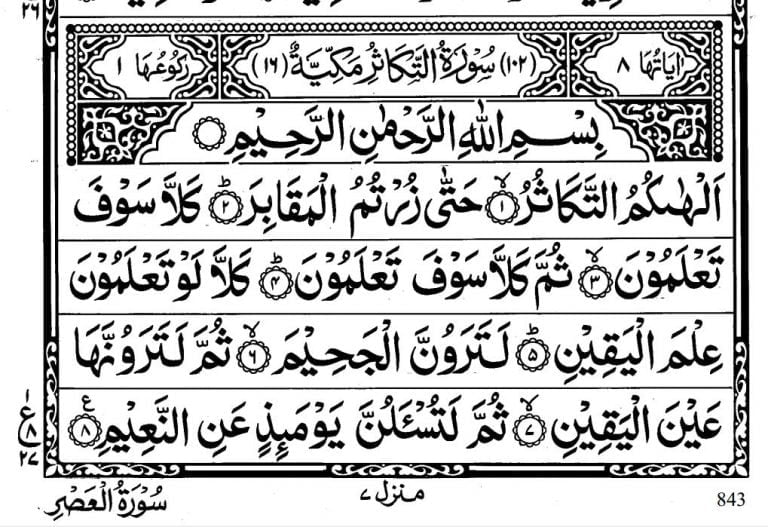 ٢٦
اٰيَاتُهَا ٨ (١٠٢) سُوْرَةُ التَّكَاثُرِ مَكِّيَّةٌ (١٦) رُكُوْعُهَا ١
بِسْمِ اللّٰهِ الرَّحْمٰنِ الرَّحِيْمِ
اَلْهٰىكُمُ التَّكَاثُرُ ۙ‏﴿١﴾ حَتّٰى زُرْتُمُ الْمَقَابِرَ ؕ‏﴿٢﴾ كَلَّا سَوْفَ
تَعْلَمُوْنَ ۙ‏﴿٣﴾ ثُمَّ كَلَّا سَوْفَ تَعْلَمُوْنَ ؕ‏﴿٤﴾ كَلَّا لَوْ تَعْلَمُوْنَ
عِلْمَ الْيَقِيْنِ ؕ‏﴿٥﴾ لَتَرَوُنَّ الْجَحِيْمَ ۙ‏﴿٦﴾ ثُمَّ لَتَرَوُنَّهَا
عَيْنَ الْيَقِيْنِ ۙ‏﴿٧﴾ ثُمَّ لَتُسْـَٔلُنَّ يَوْمَئِذٍ عَنِ النَّعِيْمِ ع‏﴿٨﴾
١
ع
٨
٢٧
843
منزل ٧
سُوْرَةُ الْعَصْرِ